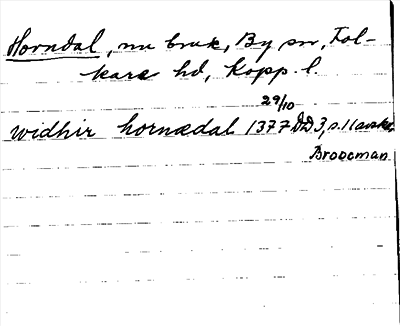 Horndal, nu bruk, By sn, Fol-
kare hd, Kopp. l.
29/10
widhir hornædal 1377 DD 3, s. 11 avskr.
Broocman